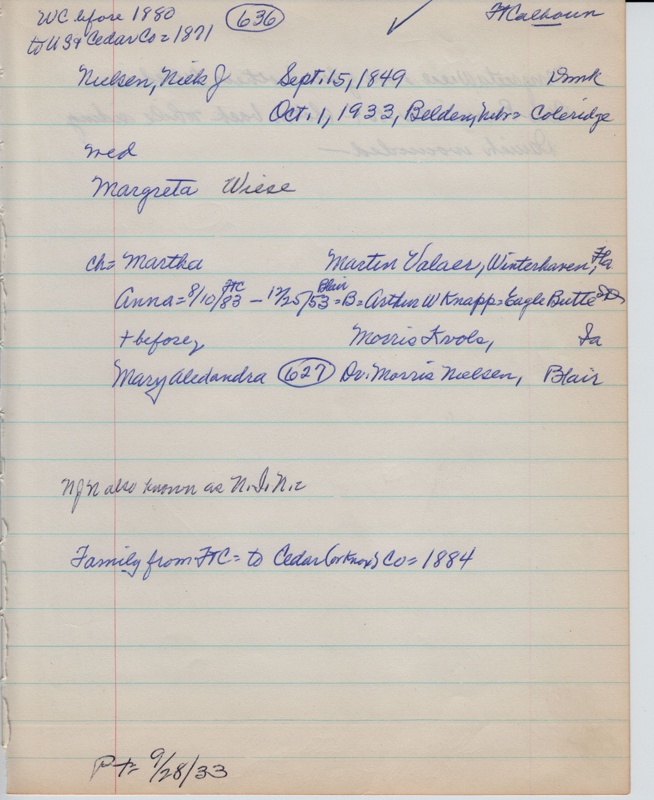 WC before 1880 (636) ✓ FtCalhoun
to US & Cedar Co = 1871
Nielsen, Niels J Sept. 15, 1849 Dnmk
Oct. 1, 1933, Belden, Nebr = Coleridge
med
Margreta Wiese
ch = Martha Martin Valaer, Winterhaven, Fla
Anna = 8/10/83 FtC – 12/25/53 Blair = B = Arthur W Knapp = Eagle Butte SD
+ before, Morris Kvols, Ia
Mary Aledandra (627) Dr. Morris Nielsen, Blair
NJN also known as N.I.N.
Family from FtC = to Cedar (or Knox) Co = 1884
P + = 9/28/33